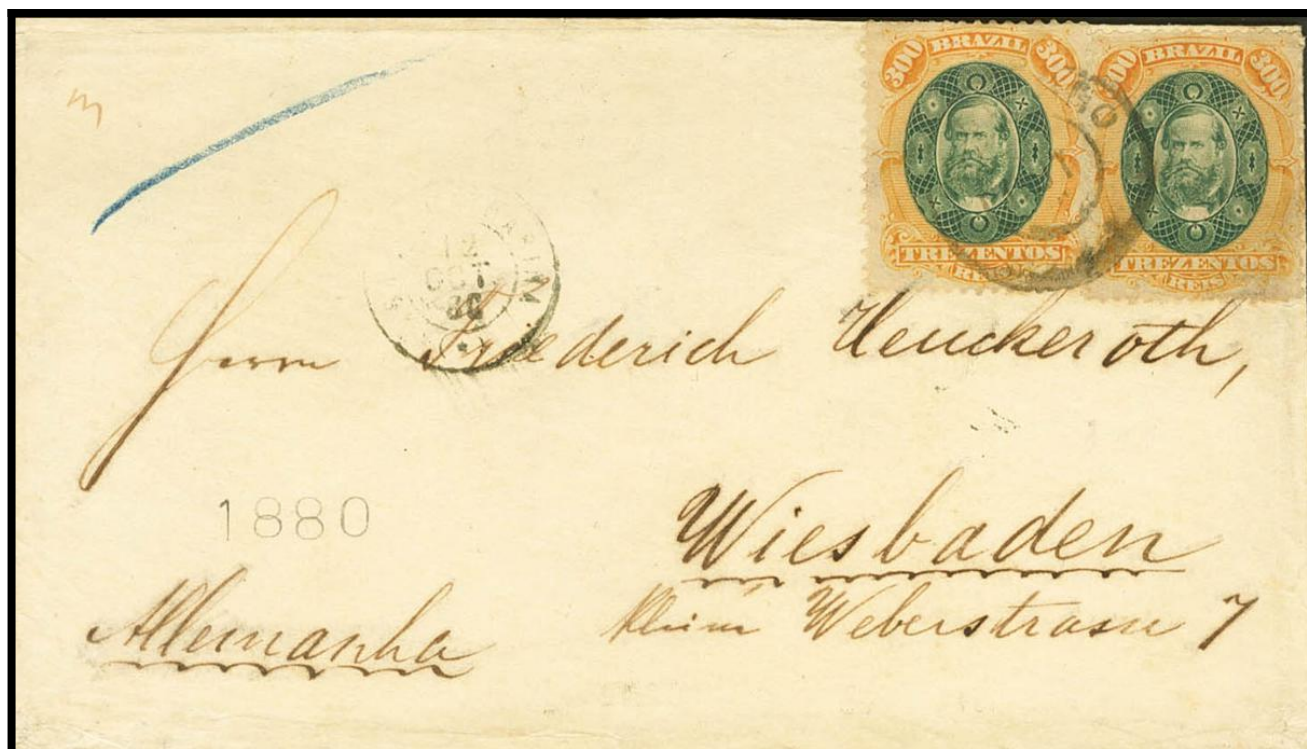 300 BRAZIL 300
TREZENTOS
REIS
00 BRAZIL 300
TREZENTOS
REIS
12
OCT
80
Herrn Friederich Heuckeroth,
1880
Wiesbaden
Allemanha
Kleine Weberstrasse 7